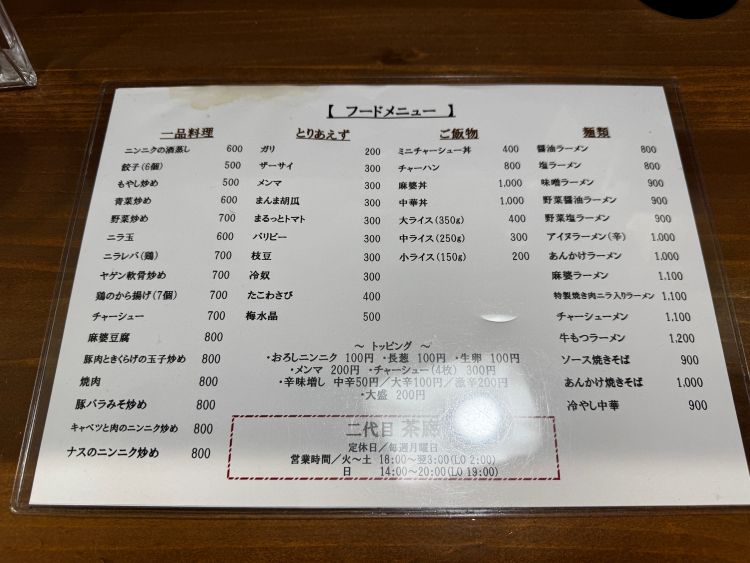 【 フードメニュー 】
一品料理
ニンニクの酒蒸し 600
餃子(6個) 500
もやし炒め 500
青菜炒め 600
野菜炒め 700
ニラ玉 600
ニラレバ(鶏) 700
ヤゲン軟骨炒め 700
鶏のから揚げ(7個) 700
チャーシュー 700
麻婆豆腐 800
豚肉ときくらげの玉子炒め 800
焼肉 800
豚バラみそ炒め 800
キャベツと肉のニンニク炒め 800
ナスのニンニク炒め 800
とりあえず
ガリ 200
ザーサイ 300
メンマ 300
まんま胡瓜 300
まるっとトマト 300
パリピー 300
枝豆 300
冷奴 300
たこわさび 400
梅水晶 500
ご飯物
ミニチャーシュー丼 400
チャーハン 800
麻婆丼 1,000
中華丼 1,000
大ライス(350g) 400
中ライス(250g) 300
小ライス(150g) 200
麺類
醤油ラーメン 800
塩ラーメン 800
味噌ラーメン 900
野菜醤油ラーメン 900
野菜塩ラーメン 900
アイヌラーメン(辛) 1,000
あんかけラーメン 1,000
麻婆ラーメン 1,100
特製焼き肉ニラ入りラーメン 1,100
チャーシューメン 1,100
牛もつラーメン 1,200
ソース焼きそば 900
あんかけ焼きそば 1,000
冷やし中華 900
～ トッピング ～
・おろしニンニク 100円 ・長葱 100円 ・生卵 100円
・メンマ 200円 ・チャーシュー(4枚) 300円
・辛味増し 中辛50円／大辛100円／激辛200円
・大盛 200円
二代目 茶
定休日／毎週月曜日
営業時間／火～土 18:00～翌3:00(LO 2:00)
日 14:00～20:00(LO 19:00)